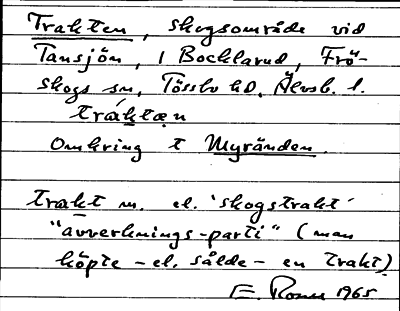 Trakten, skogsområde vid
Tansjön, i Bocklarud, Frö-
skogs sn, Tössbo hd. Älvsb. l.
traktæn
Omkring t Myränden.
trakt m. el. 'skogstrakt'
"avverknings-parti" (man
köpte - el. sålde - en trakt)
E. 1965